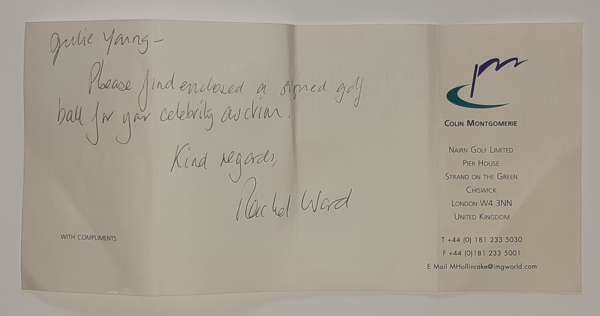 Julie Young –
Please find enclosed a signed golf
ball for your celebrity auction.
Kind regards,
Rachel Ward
WITH COMPLIMENTS
COLIN MONTGOMERIE
NAIRN GOLF LIMITED
PIER HOUSE
STRAND ON THE GREEN
CHISWICK
LONDON W4 3NN
UNITED KINGDOM
T +44 (0) 181 233 5030
F +44 (0) 181 233 5001
E Mail MHollincake@imgworld.com